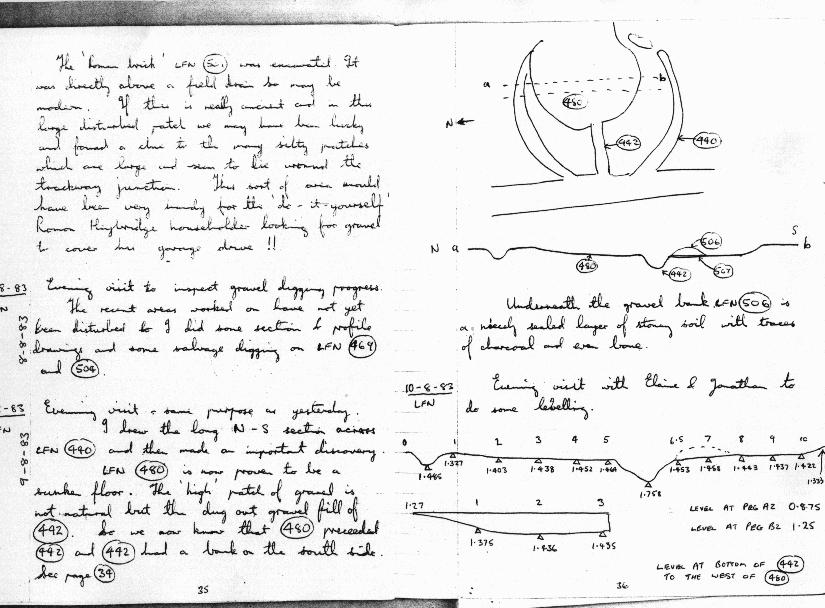 The 'Roman brick' LFN (501) was excavated. It
was directly above a field drain so may be
modern. If this is really ancient and in this
large disturbed patch we may have been lucky
and found a clue to the many silty patches
which are large and seem to lie around the
trackway junction. This sort of area would
have been very handy for the 'do-it-yourself'
Roman Heybridge householder looking for gravel
to cover his garage drive !!
8-83
N
8-8-83
Evening visit to inspect gravel digging progress.
The recent areas worked on have not yet
been disturbed so I did some section & profile
drawings and some salvage digging on LFN (469)
and (504).
-83
FN
Evening visit - same purpose as yesterday.
I drew the long N-S section across
LFN (440) and then made an important discovery.
LFN (480) is now proven to be a
sunken floor. The 'high' patch of gravel is
not natural but the dug out gravel fill of
(442). So we now know that (480) preceeded
(442) and (442) had a bank on the south side.
See page (34)
35
a
b
480
N
442
440
N a
S
b
480
442
506
507
Underneath the gravel bank LFN (506) is
a nicely sealed layer of stoney soil with traces
of charcoal and even bone.
10-8-83
LFN
Evening visit with Elaine & Jonathan to
do some labelling.
0 1 2 3 4 5 6.5 7 8 9 10
1.485 1.327 1.403 1.438 1.452 1.464 1.758 1.453 1.458 1.443 1.437 1.422 1.323
1.27 1 2 3
1.375 1.436 1.435
LEVEL AT PEG A2 0.875
LEVEL AT PEG B2 1.25
LEVEL AT BOTTOM OF (442)
TO THE WEST OF (480)
36